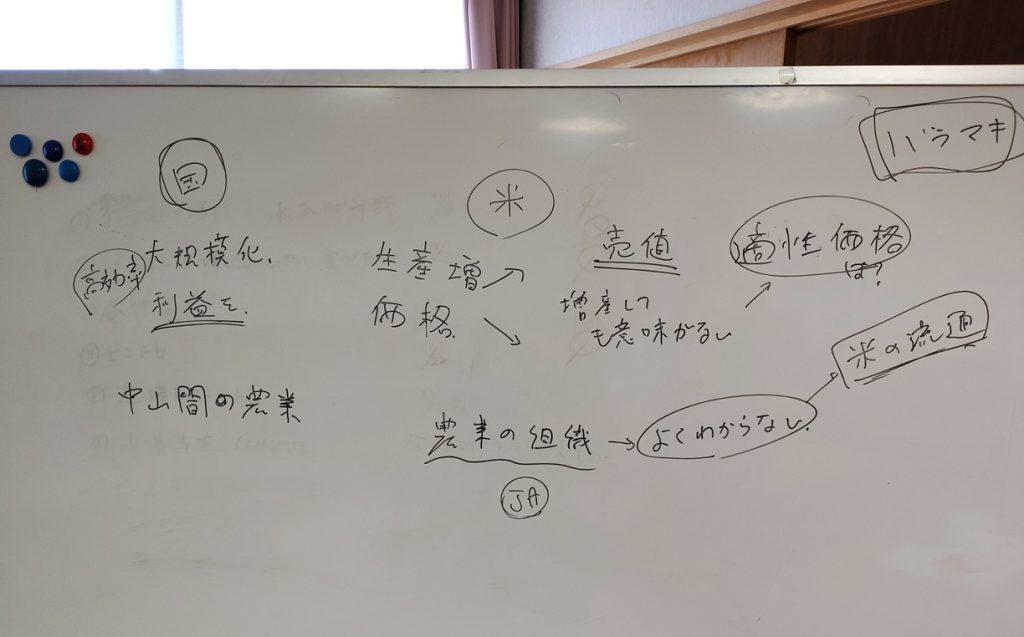 国
大規模化.
高効率
利益を.
中山間の農業
米
生産増↗
価格.↘
売値
増産して
も意味がない
↗
適性価格
は?
バラマキ
農業の組織→よくわからない.
JA
米の流通